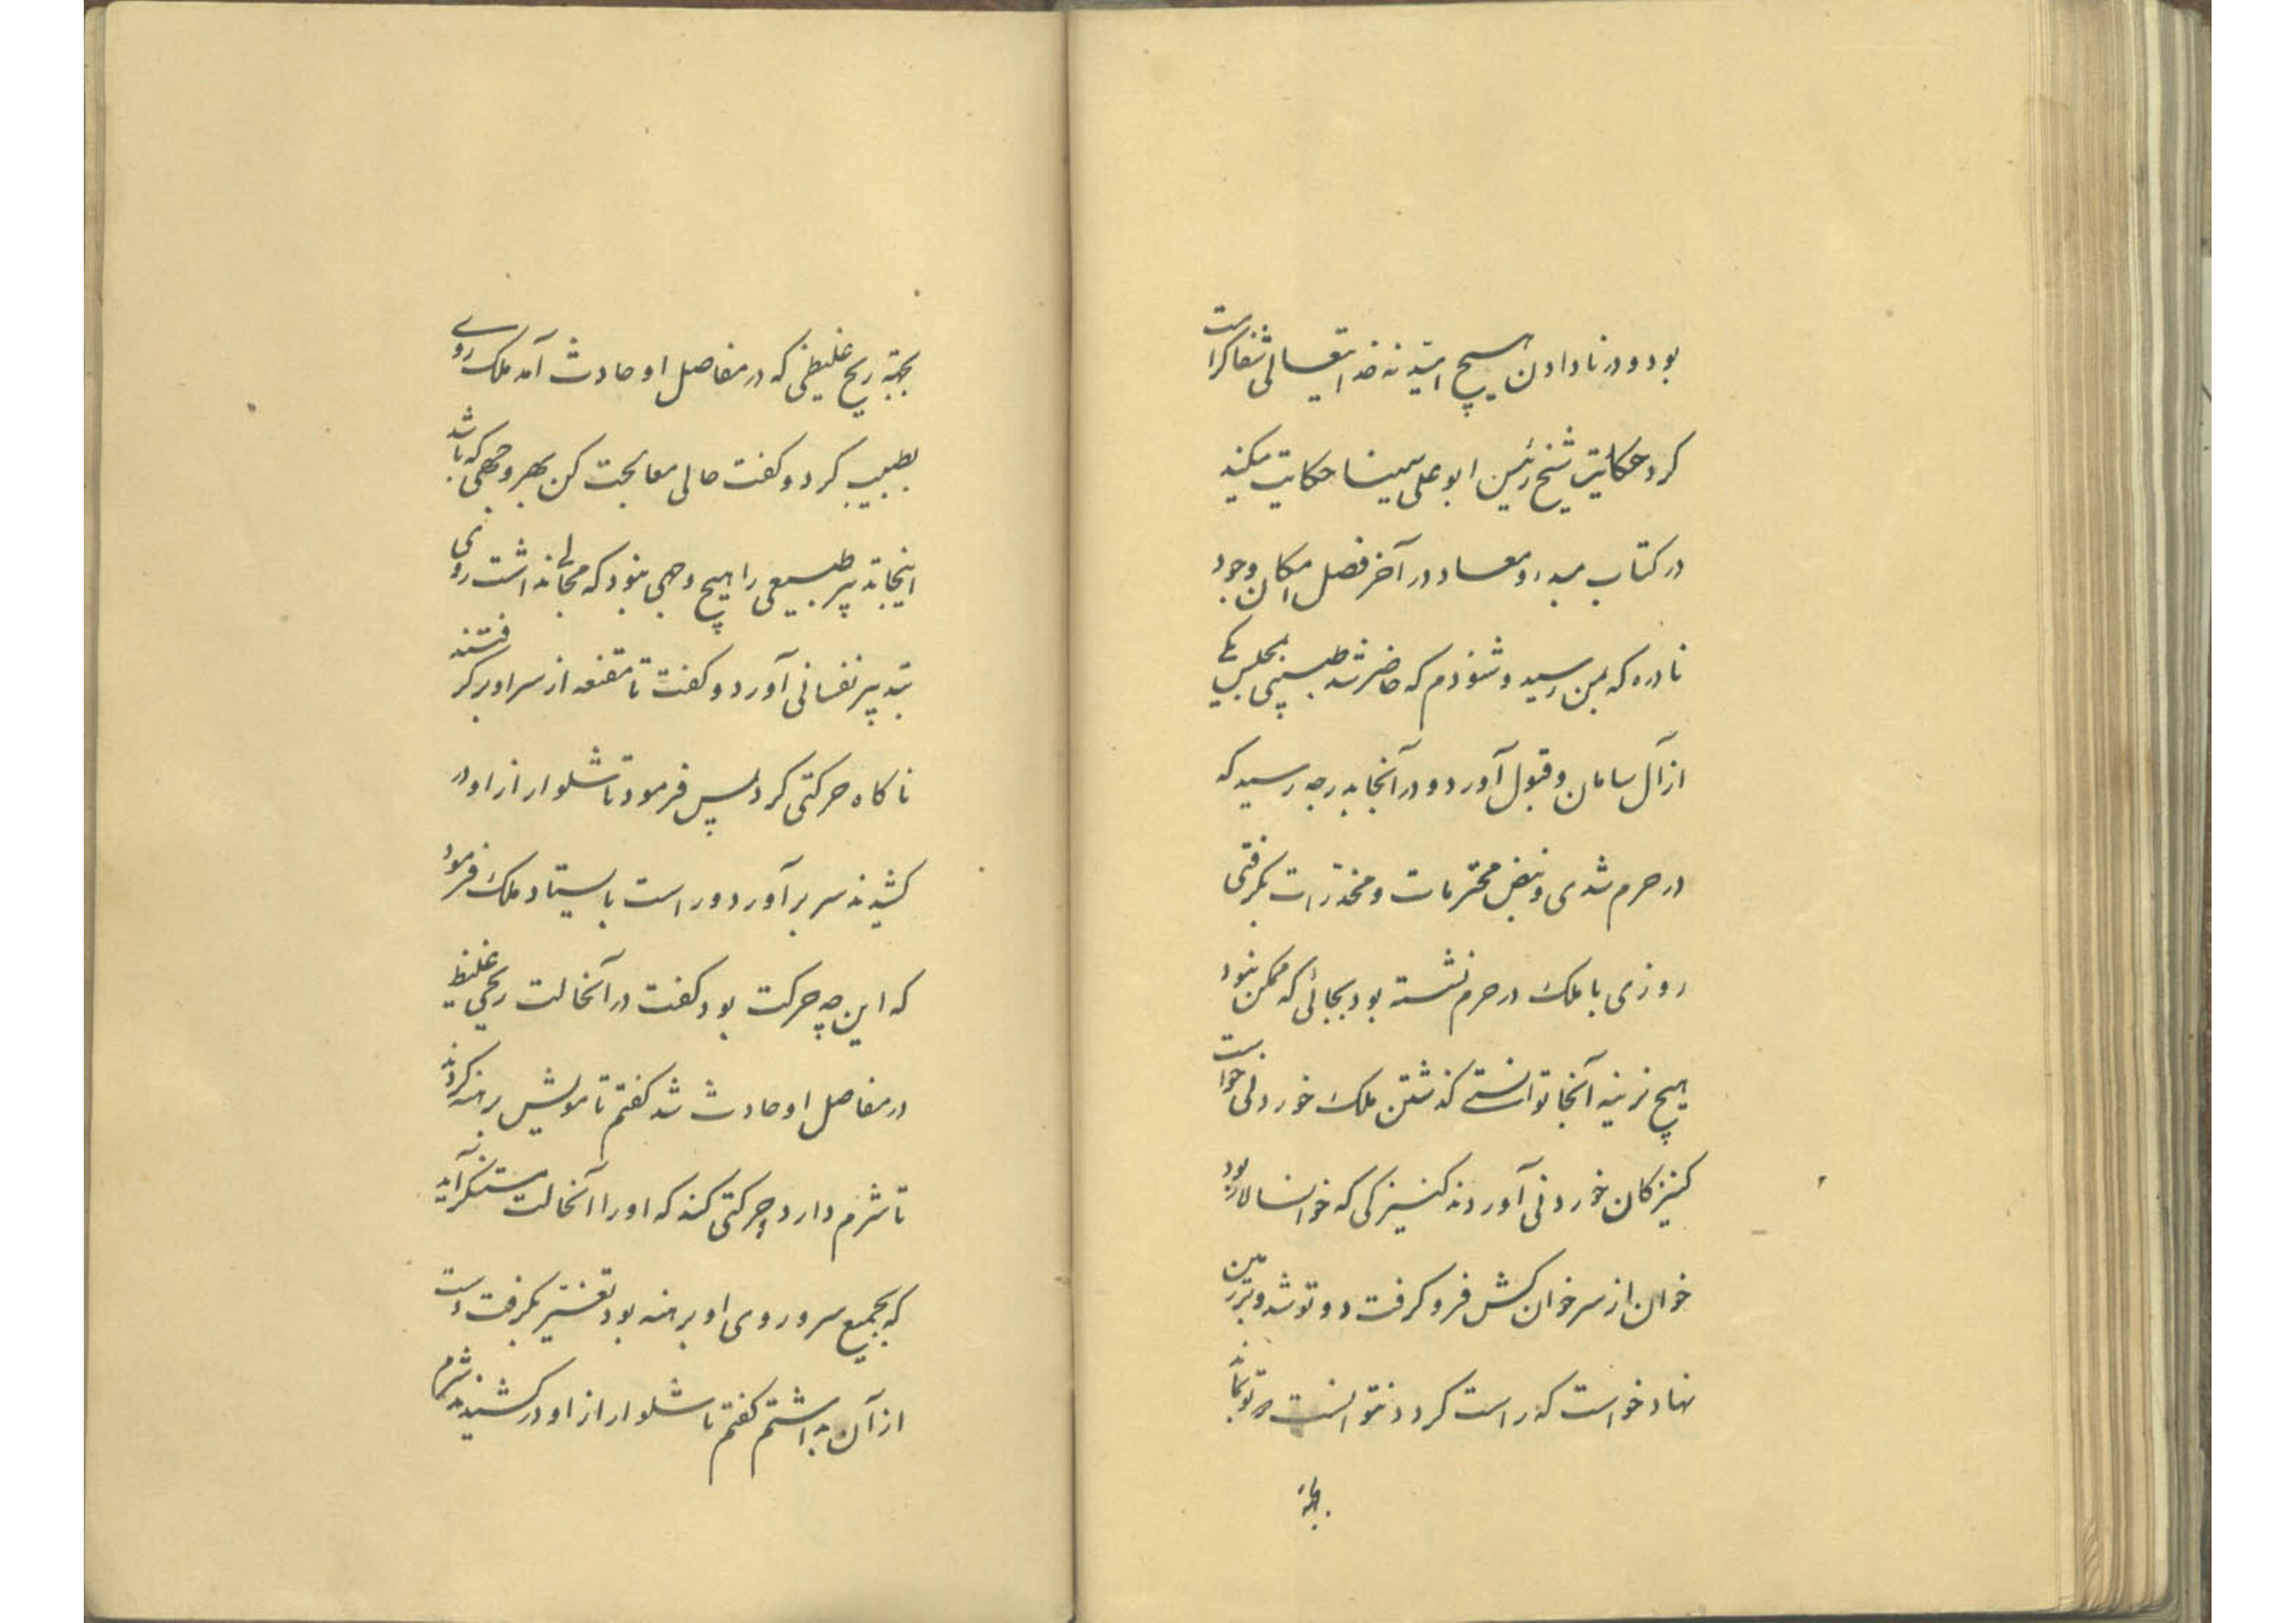 بود و در نادادن هیچ امید نه خدایتعالی شفا کرامت
کرد حکایت شیخ رئیس ابو علی سینا حکایت میکند
در کتاب مبدء و معاد در آخر فصل امکان وجود
نادره که بمن رسید و شنودم که حاضر شد طبیبی بمجلس یکی
از آل سامان و قبول آورد و در آنجا بدرجه رسید که
در حرم شدی و نبض محترمات و مخدرات بکرفتی
روزی با ملک در حرم نشسته بود بجائی که ممکن نبود
هیچ نرینه آنجا توانستی کذشتن ملک خوردنی خواست
کنیزکان خوردنی آوردند کنیزکی که خوانسالار بود
خوان از سر خوان کش فرو کرفت دوتو شد و بر زمین
نهاد خواست که راست کردد نتوانست دوتو بماند
بجهة
بجهة ریح غلیظی که در مفاصل او حادث آمد ملک روی
بطبیب کرد و کفت حالی معالجت کن بهر وجهی که باشد
اینجا تدبیر طبیعی را هیچ وجهی نبود که مجالی نداشت روی
بتدبیر نفسانی آورد و کفت تا مقنعه از سر او برکرفتند
ناکاه حرکتی کرد پس فرمود تا شلوار از او در
کشیدند سر برآورد و راست بایستاد ملک فرمود
که این چه حرکت بود کفت در آنحالت ریحی غلیظ
در مفاصل او حادث شد کفتم تا مویش برهنه کردند
تا شرم دارد و حرکتی کند که او را آنحالت مستنکر آید
که بجمیع سر و روی او برهنه بود تغیر بکرفت دست
از آن بداشتم کفتم تا شلوار از او در کشیدند شرم